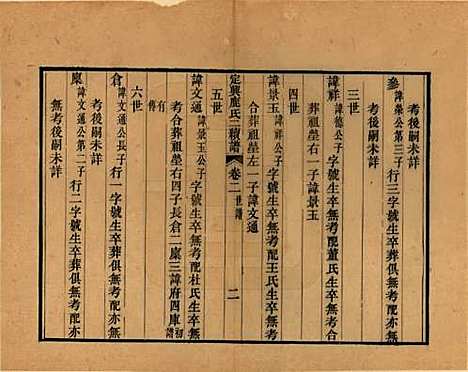 考後嗣未詳
參諱榮公第三子行三字號生卒葬俱無考配亦無
考後嗣未詳
三世
諱祥諱德公子字號生卒無考配董氏生卒無考合
葬祖塋右一子諱景玉
四世
諱景玉諱祥公子字號生卒無考配王氏生卒無考
合葬祖塋左一子諱文通
定興鹿氏二續譜 卷二 世譜 二
五世
諱文通諱景玉公子字號生卒無考配杜氏生卒無
考合葬祖塋右四子長倉二廩三諱府四庫初譜
有傳
六世
倉諱文通公長子行一字號生卒葬俱無考配亦無
考後嗣未詳
廩諱文通公第二子行二字號生卒葬俱無考配亦
無考後嗣未詳